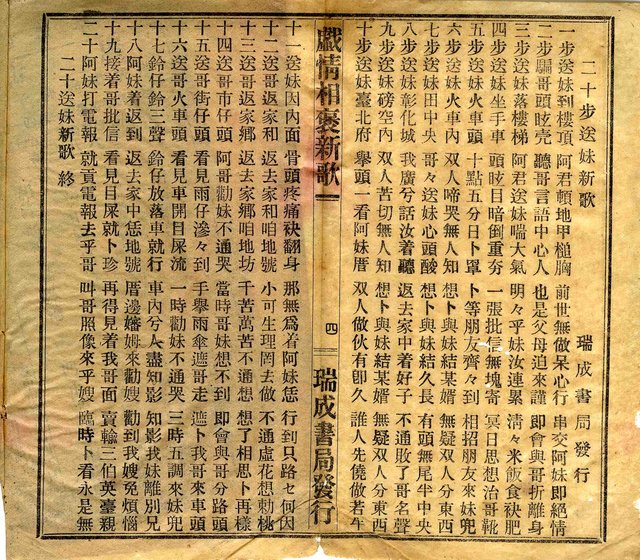 二十步送妹新歌
瑞成書局發行
一步送妹到樓頂 阿君頓地甲槌胸 前世無做呆心行 串交阿妹即絕情
二步騙哥頭眩壳 聽哥言語中心人 也是父母迫來謹 即會與哥折離身
三步送妹落樓梯 阿君送妹喘大氣 明々乎妹汝連累 清々米飯食袂肥
四步送妹坐手車 頭眩目暗倒重夯 一張批信無塊寄 冥日思想治哥靴
五步送妹火車頭 十點五分日卜罩 卜等朋友齊々到 相招朋友來妹兜
六步送妹火車內 双人啼哭無人知 想卜與妹結某婿 無疑双人分東西
七步送妹田中央 哥々送妹心頭酸 想卜與妹結久長 有頭無尾半中央
八步送妹彰化城 我廣兮話汝着聽 返去家中着好子 不通敗了哥名聲
九步送妹磅空內 双人苦切無人知 想卜與妹結某婿 無疑双人分東西
十步送妹臺北府 舉頭一看阿妹厝 双人做伙有即久 誰人先僥做若牛
戲情相褒新歌
四
瑞成書局發行
十一送妹因內面 骨頭疼痛袂翻身 那無為着阿妹恁 行到只路セ何因
十二送哥返家和 返去家和咱地號 小可生理罔去做 不通虛花想勅桃
十三送哥返家鄉 返去家鄉咱地坊 千苦萬苦不通想 想了相思卜再樣
十四送哥市仔頭 阿哥勸妹不通哭 當時哥妹想不到 即會與哥分路頭
十五送哥街仔頭 看見雨仔滲々到 手舉雨傘遮哥走 遮卜我哥來車頭
十六送哥火車頭 看見車開目屎流 一時勸妹不通哭 三時五調來妹兜
十七鈴仔鈴三聲 鈴仔放落車就行 車內兮人盡知影 知影我妹離別兄
十八阿妹着返到 返去家中恁地號 厝邊嬸姆來勸嫂 勸到我嫂免煩惱
十九接着哥批信 看見目屎就卜珍 再得見着我哥面 賣輸三伯英臺親
二十阿妹打電報 就貢電報去乎哥 叫哥照像來乎嫂 臨時卜看永是無
二十送妹新歌 終